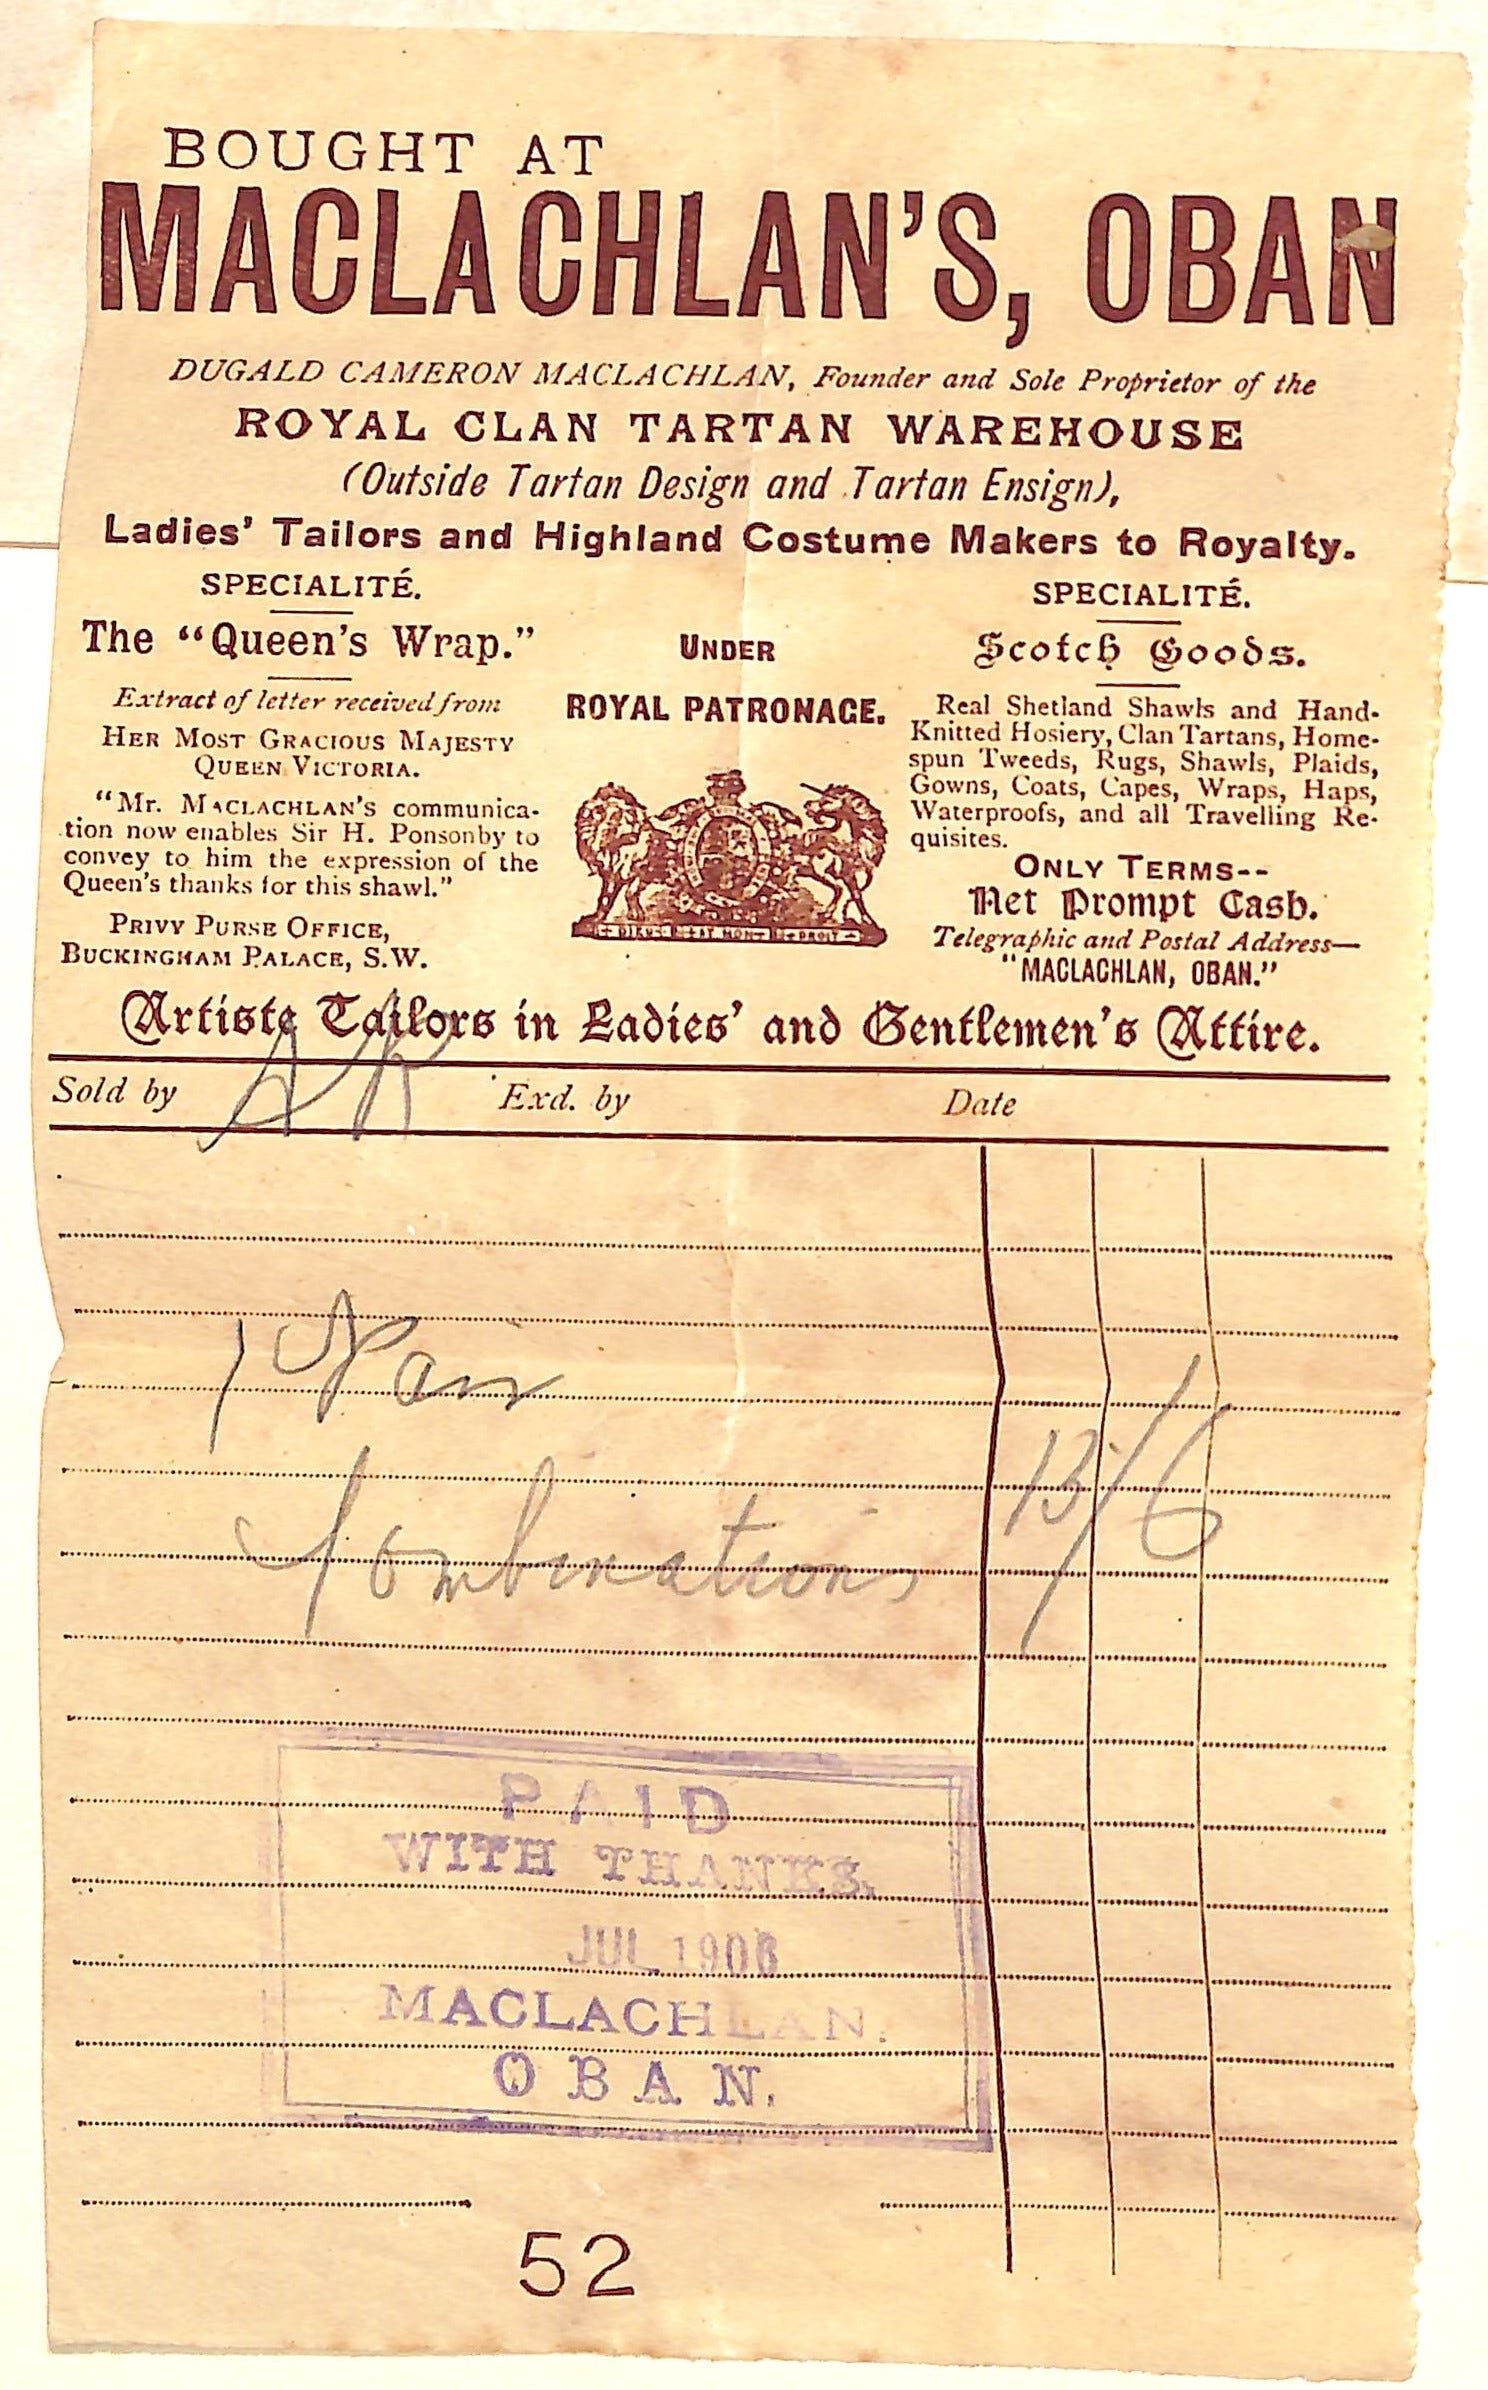 BOUGHT AT
MACLACHLAN'S, OBAN
DUGALD CAMERON MACLACHLAN, Founder and Sole Proprietor of the
ROYAL CLAN TARTAN WAREHOUSE
(Outside Tartan Design and Tartan Ensign),
Ladies' Tailors and Highland Costume Makers to Royalty.
SPECIALITÉ.
The "Queen's Wrap."
Extract of letter received from
HER MOST GRACIOUS MAJESTY
QUEEN VICTORIA.
"Mr. MACLACHLAN'S communica-
tion now enables Sir H. Ponsonby to
convey to him the expression of the
Queen's thanks for this shawl."
PRIVY PURSE OFFICE,
BUCKINGHAM PALACE, S.W.
UNDER
ROYAL PATRONAGE.
DIEU ET MON DROIT
SPECIALITÉ.
Scotch Goods.
Real Shetland Shawls and Hand-
Knitted Hosiery, Clan Tartans, Home-
spun Tweeds, Rugs, Shawls, Plaids,
Gowns, Coats, Capes, Wraps, Haps,
Waterproofs, and all Travelling Re-
quisites.
ONLY TERMS--
Net Prompt Cash.
Telegraphic and Postal Address—
"MACLACHLAN, OBAN."
Artiste Tailors in Ladies' and Gentlemen's Attire.
Sold by Exd. by Date
1 Pair
Combinations 13/6
PAID
WITH THANKS.
JUL 1906
MACLACHLAN.
OBAN.
52